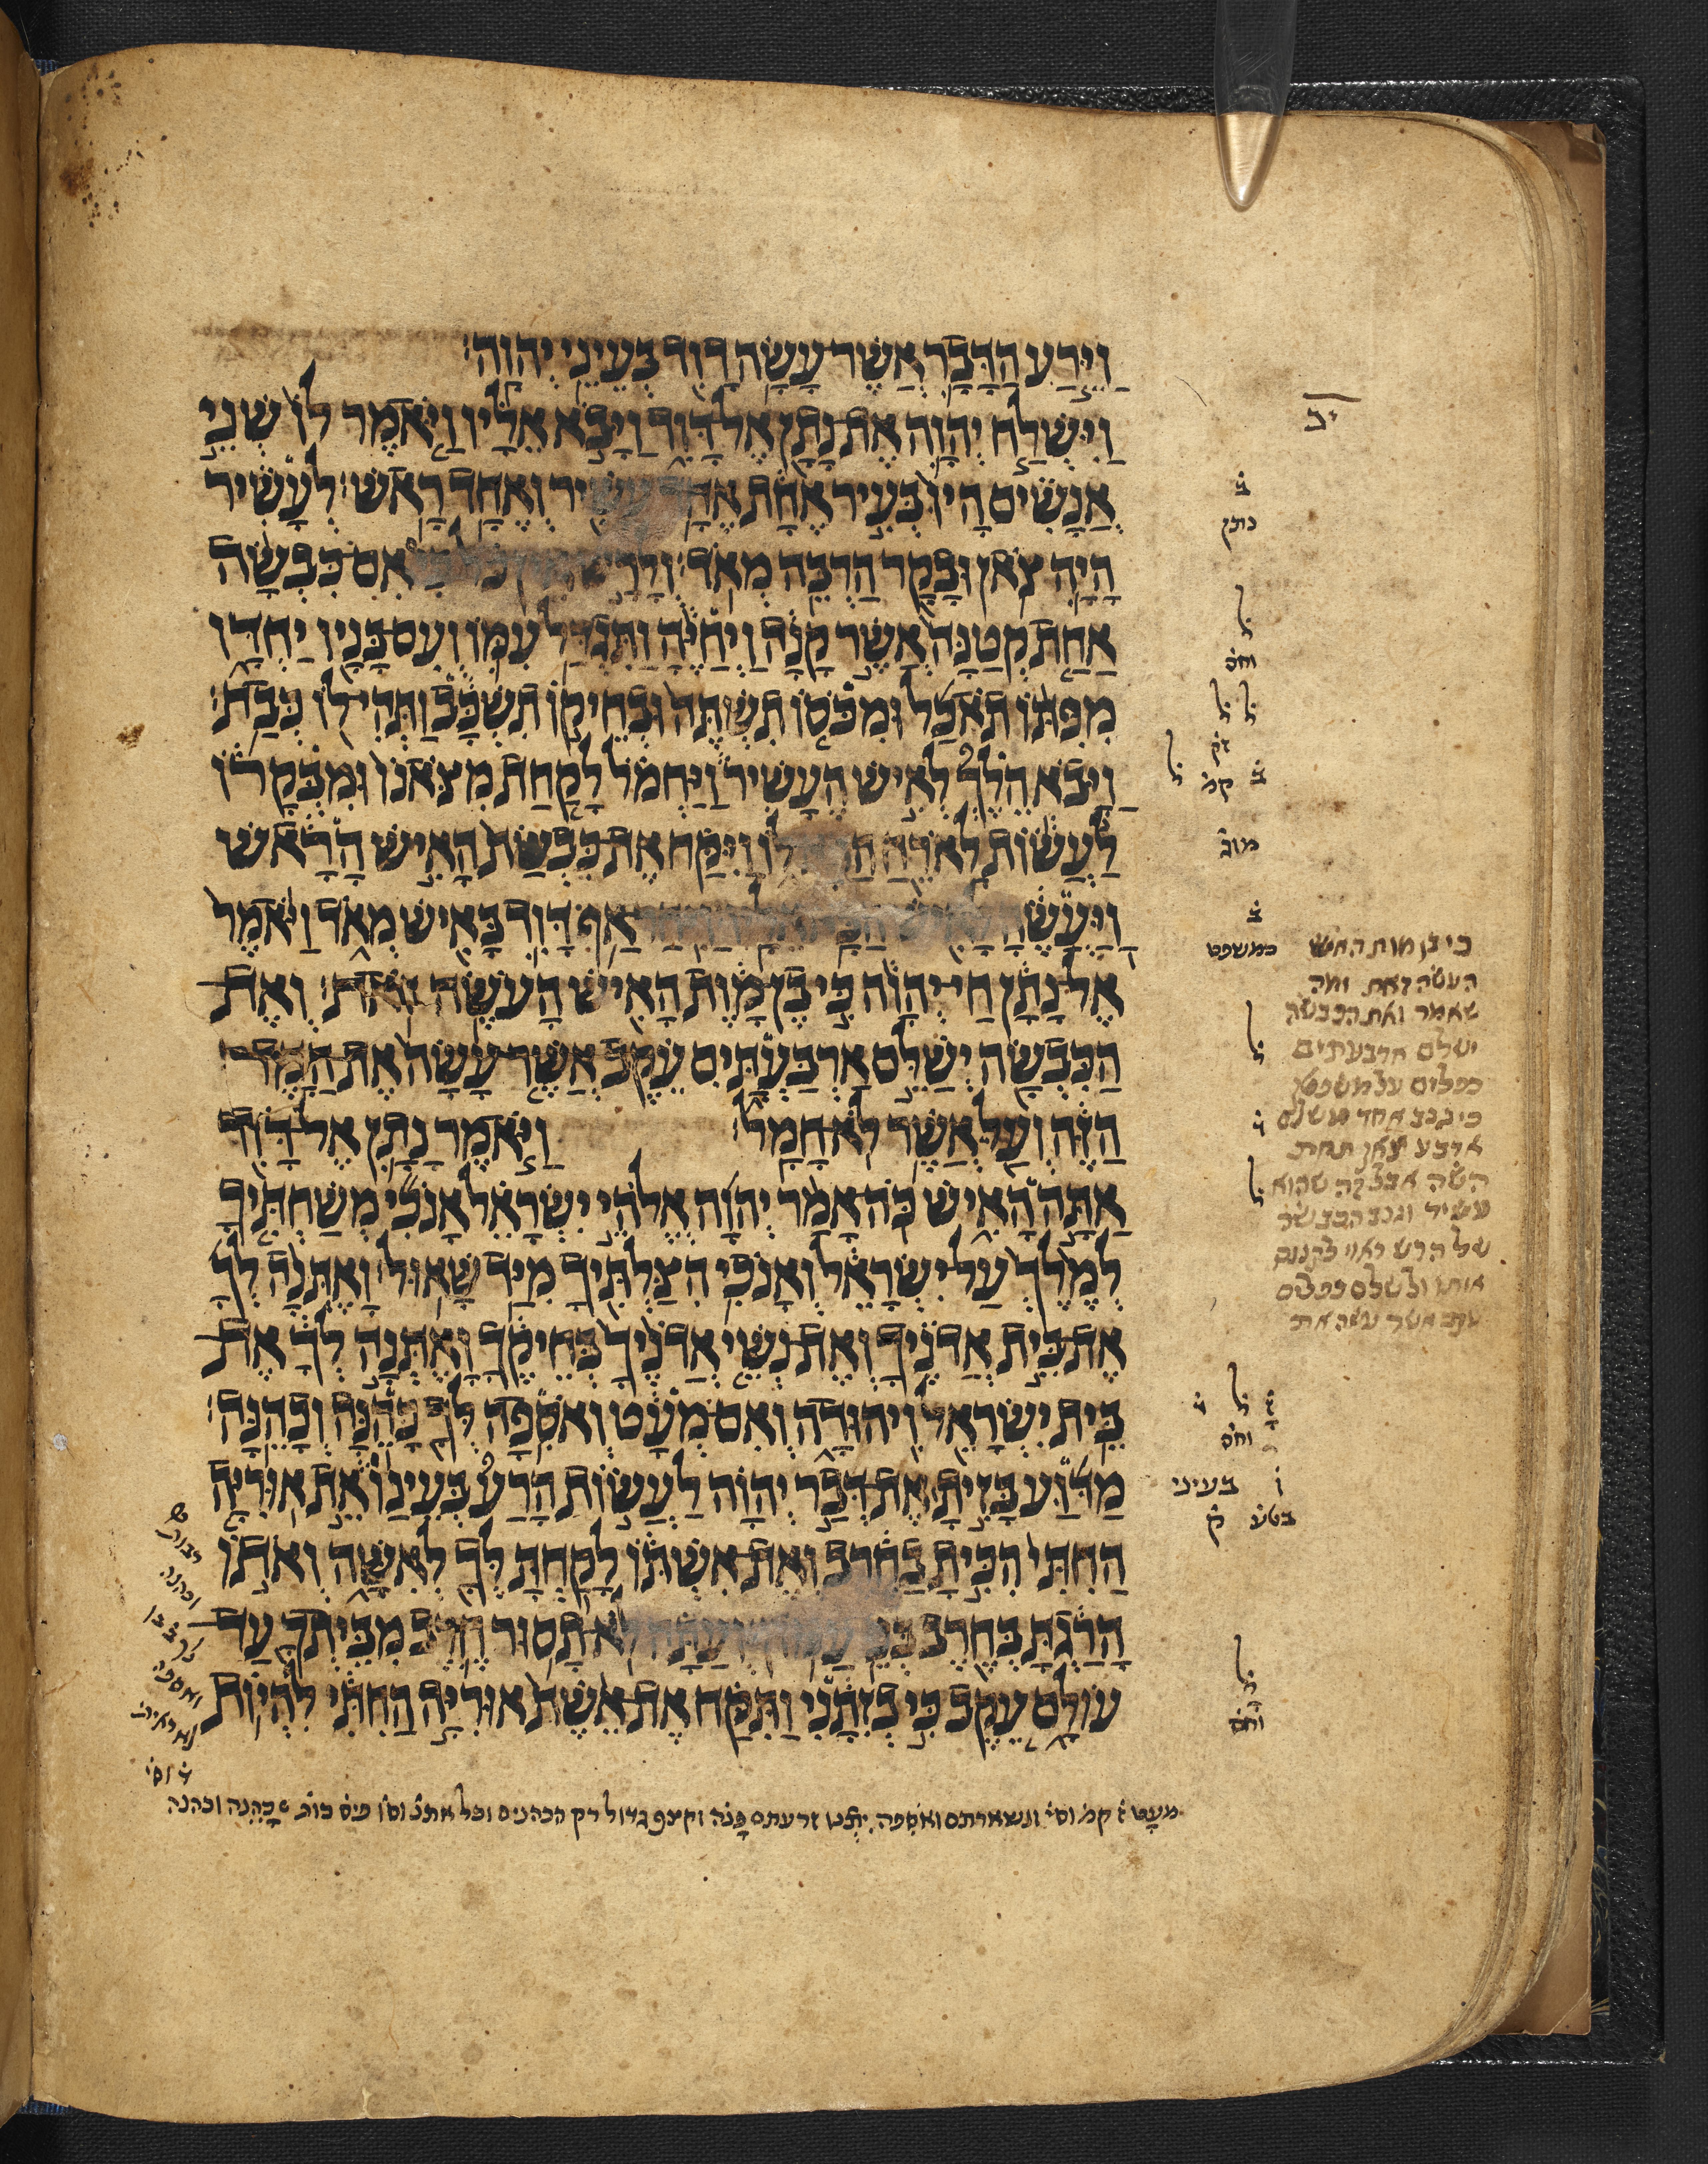 וַיֵּרַע הַדָּבָר אֲשֶׁר עָשָׂה דָוִד בְּעֵינֵי יְהוָה׃
יב
וַיִּשְׁלַח יְהוָה אֶת נָתָן אֶל דָּוִד וַיָּבֹא אֵלָיו וַיֹּאמֶר לוֹ שְׁנֵי
אֲנָשִׁים הָיוּ בְּעִיר אֶחָת אֶחָד עָשִׁיר וְאֶחָד רָאשׁ׃ לְעָשִׁיר
הָיָה צֹאן וּבָקָר הַרְבֵּה מְאֹד׃ וְלָרָשׁ אֵין כֹּל כִּי אִם כִּבְשָׂה
אַחַת קְטַנָּה אֲשֶׁר קָנָה וַיְחַיֶּהָ וַתִּגְדַּל עִמּוֹ וְעִם בָּנָיו יַחְדָּו
מִפִּתּוֹ תֹאכַל וּמִכֹּסוֹ תִשְׁתֶּה וּבְחֵיקוֹ תִשְׁכָּב וַתְּהִי לוֹ כְּבַת׃
וַיָּבֹא הֵלֶךְ לְאִישׁ הֶעָשִׁיר וַיַּחְמֹל לָקַחַת מִצֹּאנוֹ וּמִבְּקָרוֹ
לַעֲשׂוֹת לָאֹרֵחַ הַבָּא לוֹ וַיִּקַּח אֶת כִּבְשַׂת הָאִישׁ הָרָאשׁ
וַיַּעֲשֶׂהָ לָאִישׁ הַבָּא אֵלָיו׃ וַיִּחַר אַף דָּוִד בָּאִישׁ מְאֹד וַיֹּאמֶר
אֶל נָתָן חַי יְהוָה כִּי בֶן מָוֶת הָאִישׁ הָעֹשֶׂה זֹאת׃ וְאֶת
הַכִּבְשָׂה יְשַׁלֵּם אַרְבַּעְתָּיִם עֵקֶב אֲשֶׁר עָשָׂה אֶת הַדָּבָר
הַזֶּה וְעַל אֲשֶׁר לֹא חָמָל׃ וַיֹּאמֶר נָתָן אֶל דָּוִד
אַתָּה הָאִישׁ כֹּה אָמַר יְהוָה אֱלֹהֵי יִשְׂרָאֵל אָנֹכִי מְשַׁחְתִּיךָ
לְמֶלֶךְ עַל יִשְׂרָאֵל וְאָנֹכִי הִצַּלְתִּיךָ מִיַּד שָׁאוּל׃ וָאֶתְּנָה לְךָ
אֶת בֵּית אֲדֹנֶיךָ וְאֶת נְשֵׁי אֲדֹנֶיךָ בְּחֵיקֶךָ וָאֶתְּנָה לְךָ אֶת
בֵּית יִשְׂרָאֵל וִיהוּדָה וְאִם מְעָט וְאֹסִפָה לְּךָ כָּהֵנָּה וְכָהֵנָּה׃
מַדּוּעַ בָּזִיתָ אֶת דְּבַר יְהוָה לַעֲשׂוֹת הָרַע בְּעֵינַו אֵת אוּרִיָּה
הַחִתִּי הִכִּיתָ בַחֶרֶב וְאֶת אִשְׁתּוֹ לָקַחְתָּ לְּךָ לְאִשָּׁה וְאֹתוֹ
הָרַגְתָּ בְּחֶרֶב בְּנֵי עַמּוֹן׃ וְעַתָּה לֹא תָסוּר חֶרֶב מִבֵּיתְךָ עַד
עוֹלָם עֵקֶב כִּי בְזִתָנִי וַתִּקַּח אֶת אֵשֶׁת אוּרִיָּה הַחִתִּי לִהְיוֹת
ב̇
כותק
ל
וחס
ל ל
ב̇ קמ̇
ב̇
כמשפט
ל
ל
וחס
בעיני
ק̇
ל
וחס
כי בן מות האיש
העשה זאת ומה
שאמר ואת הכבשה
ישלם ארבעתים
כפלים על משפט
ארבע צאן תחת
השה
של הרש ראוי
עקב אשר עשה את
וכהנה
ואספה
מעט ז̇ קמ̇ וס̇י̇ ונשארתם ואספה זרעתם וקצף גדול רק הכהנים וכל את̇נ̇ וס̇ו̇ פ̇ס̇ כות̇ כהנה וכהנה